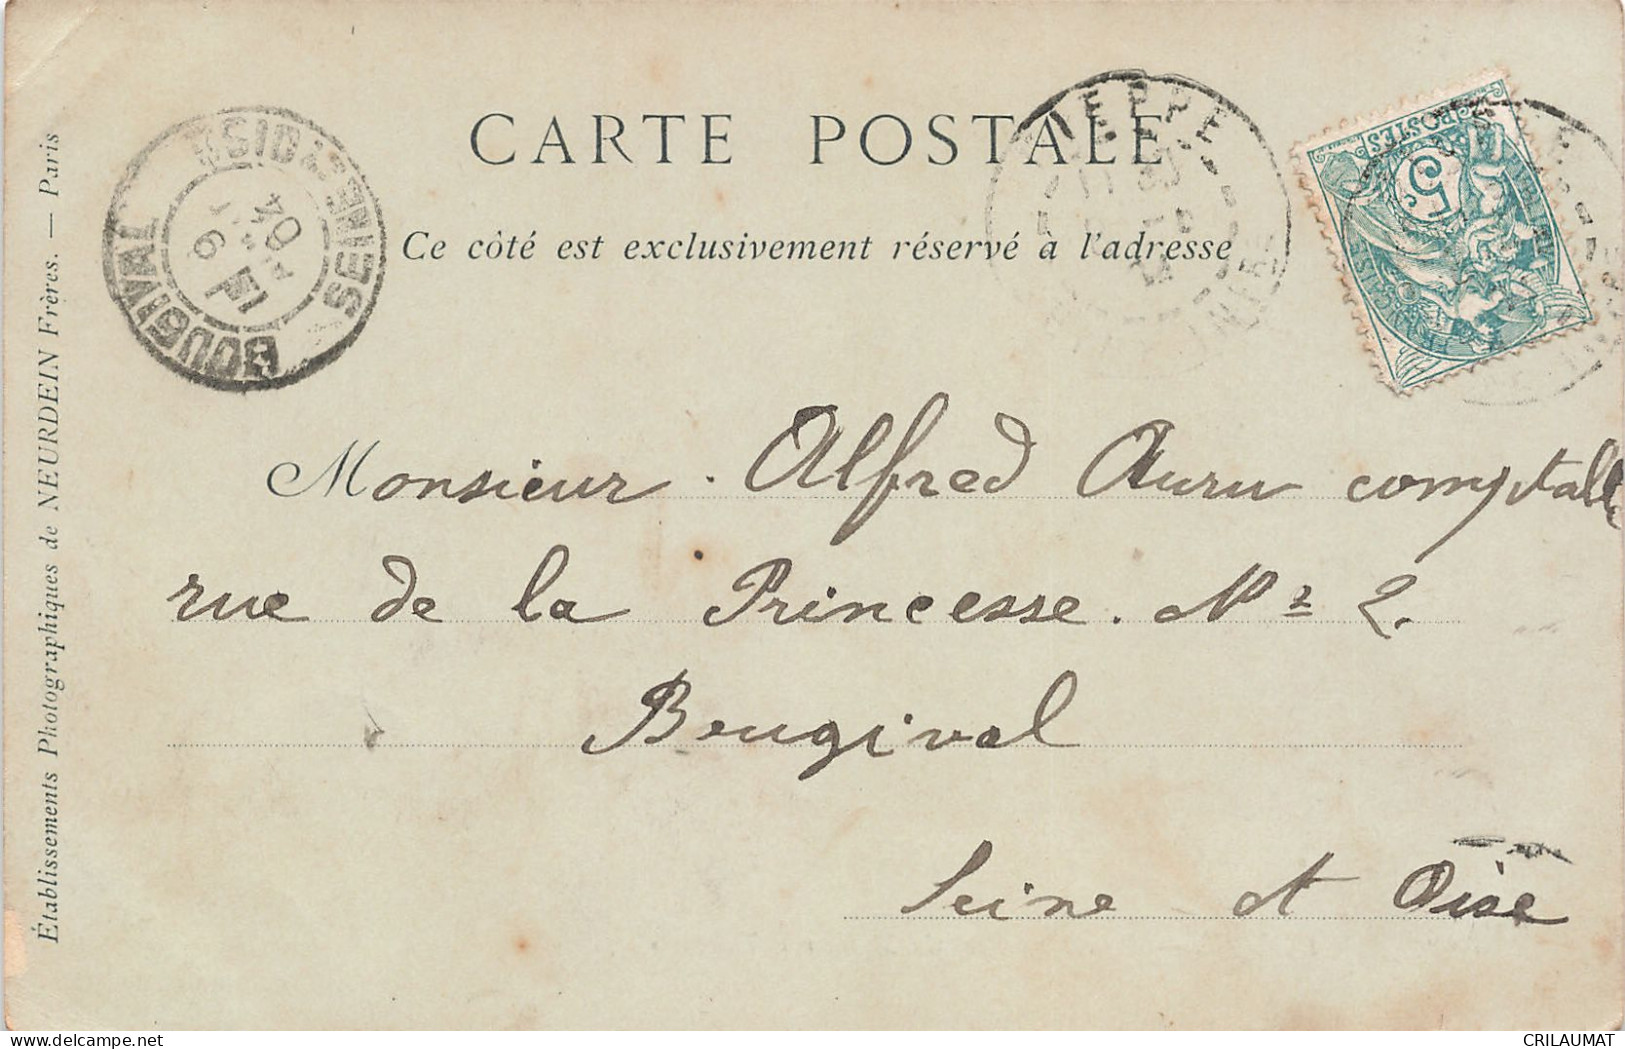 CARTE POSTALE
Ce côté est exclusivement réservé à l'adresse
Établissements Photographiques de NEURDEIN Frères. — Paris
BOUGIVAL
SEINE-ET-OISE
04
5
POSTES
Monsieur. Alfred Auru comptable
rue de la Princesse. No 2.
Bougival
Seine et Oise
CRILAUMAT